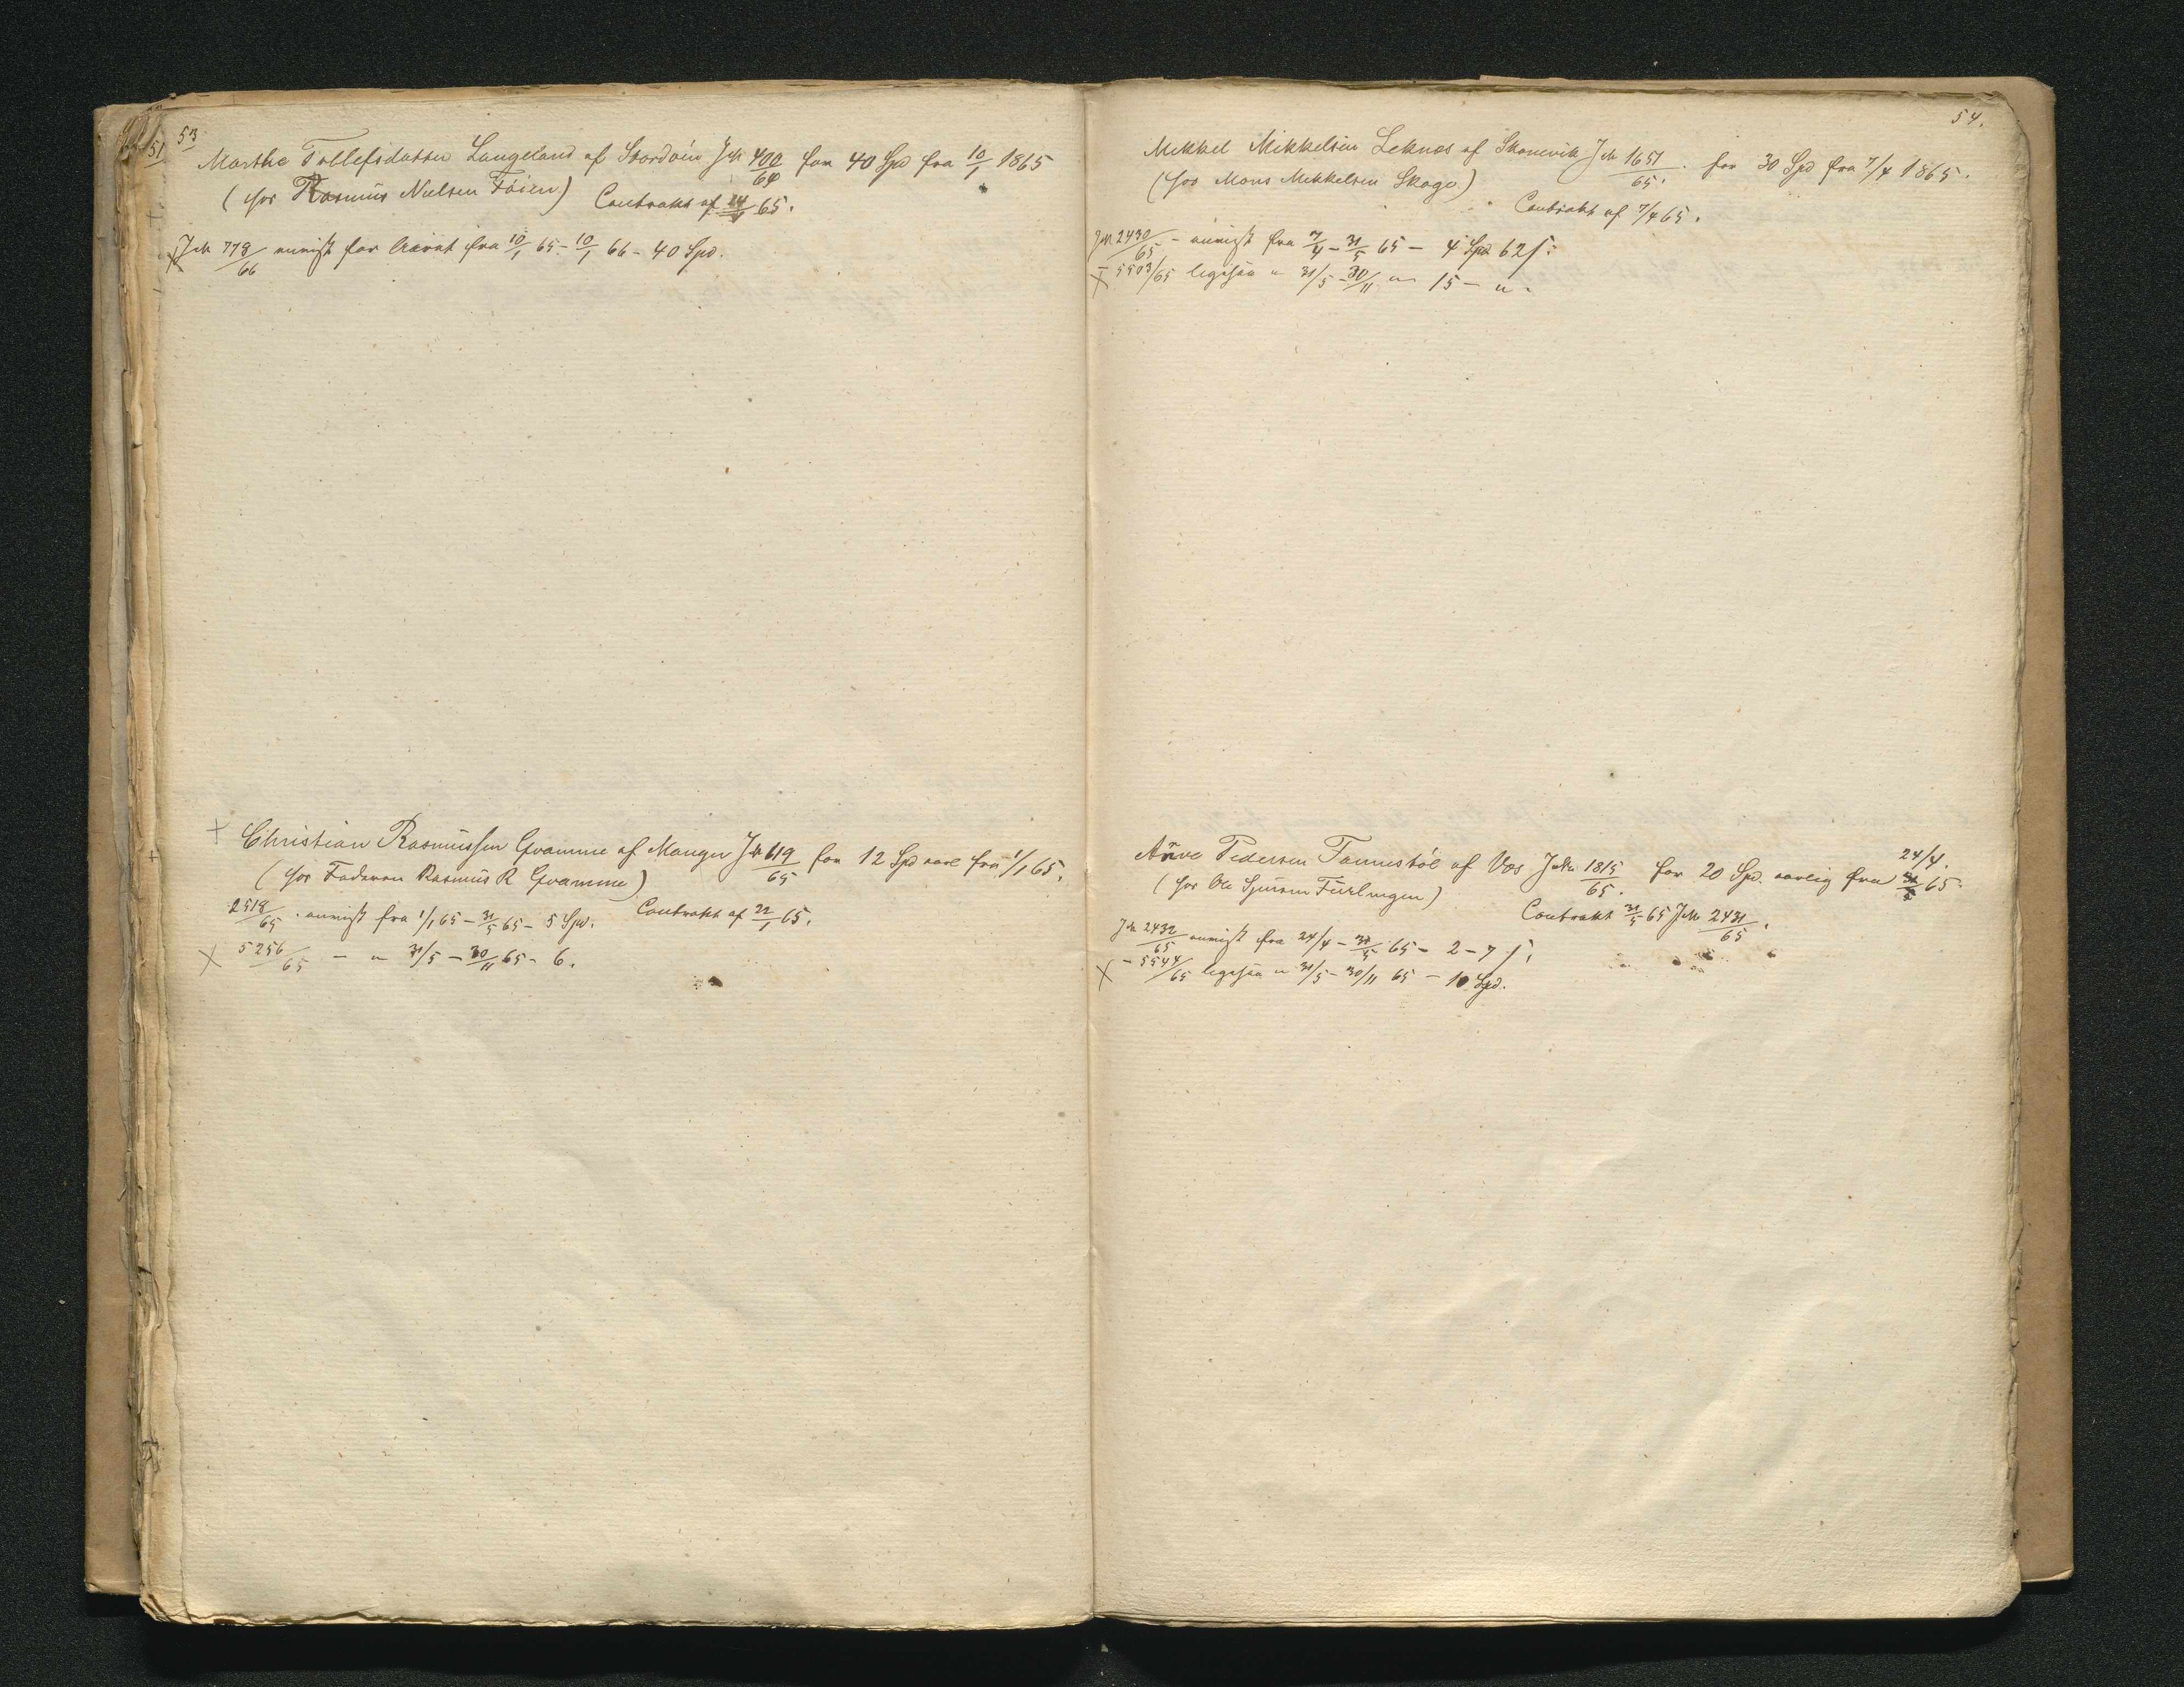 53
51
Marthe Tollefsdatter Langeland af Stordøen J№ 400/64 for 40 Spd fra 10/1 1865
(hos Rasmus Nielsen Føien) Contrakt af 65.
J№ 778/66 anvist for Aaret fra 10/1 65 - 10/1 66 - 40 Spd.
Christian Rasmussen Qvamme af Manger J№ 619/65 for 12 Spd aarl fra 1/1 65.
(hos Faderen Rasmus R Qvamme)
Contrakt af 22/1 65.
2518/65 . anvist fra 1/1 65 - 31/5 65 - 5 Spd.
5256/65 - " 31/5 - 30/11 65 - 6.
54.
Mikkel Mikkelsen Leknæs af Skonevik J№ 1651/65. for 30 Spd fra 7/4 1865.
(hos Mons Mikkelsen Skoge.)
Contrakt af 7/4 65.
J№ 2430/65 - anvist fra 7/4 - 31/5 65 - 4 Spd 62 ſ:
- 5503/65 ligesaa " 31/5 - 30/11 " 15 - " .
24/4.
Arve Pedersen Tonnestøl af Vos J№ 1815/65. for 20 Spd. aarlig fra 31/5 65.
(hos Ole Sjursen)
Contrakt 31/5 65 J№ 2431/65.
J№ 2432/65 anvist fra 24/4 - 31/5 65 - 2 - 7 ſ.
- 5544/65 ligesaa " 31/5 - 30/11 65 - 10 Spd.